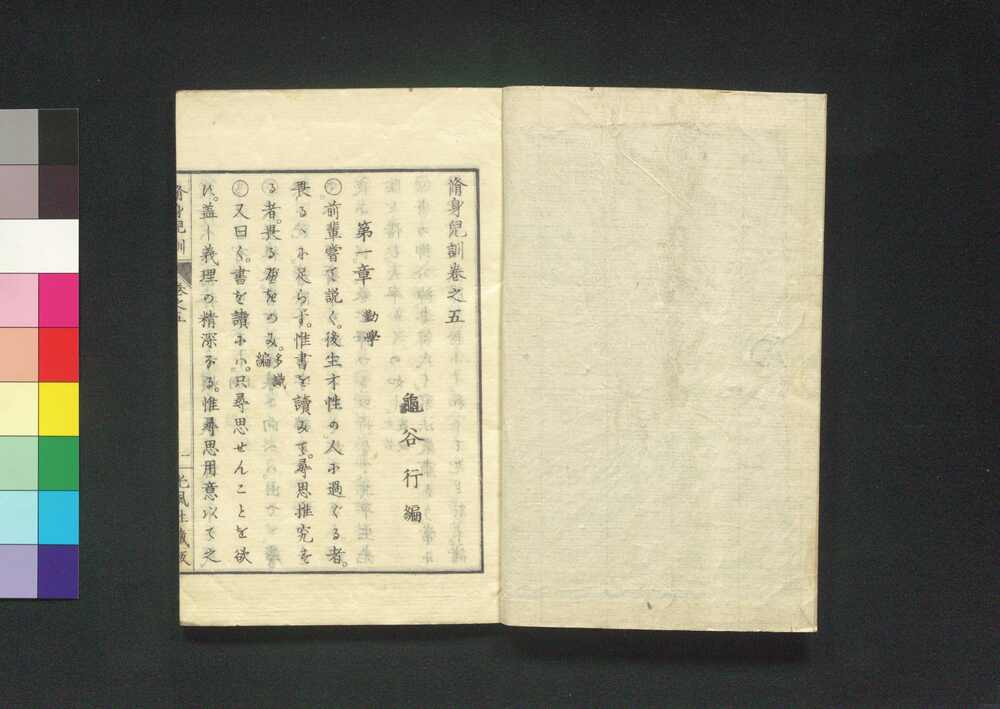 脩身兒訓卷之五
龜谷行編
第一章 勤學
○前輩嘗て説く。後生才性の人ニ過ぐる者。
畏るゝニ足らず。惟書を讀みて。尋思推究を
る者。畏る可をのみ。多識編
○又曰く。書を讀ニハ。只尋思せんことを欲
ハ。蓋し義理の精深なる。惟尋思用意以て之
脩身兒訓 卷之五 一 光風社藏版